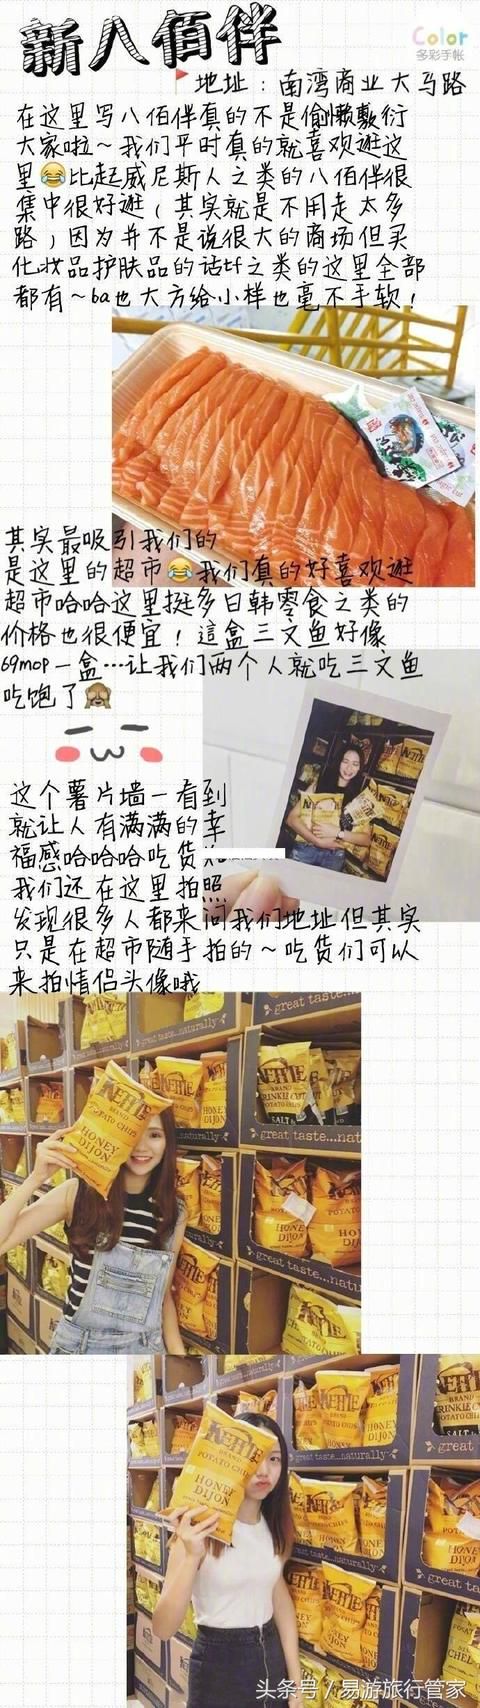 新八佰伴
Color
多彩手帐
地址：南湾商业大马路
在这里写八佰伴真的不是偷懒敷衍
大家啦～我们平时真的就喜欢逛这
里😂比起威尼斯人之类的八佰伴很
集中很好逛，其实就是不用走太多
路，因为并不是说很大的商场但买
化妆品护肤品的话tf之类的这里全部
都有～ba也大方给小样也毫不手软！
其实最吸引我们的
是这里的超市😂我们真的好喜欢逛
超市哈哈这里挺多日韩零食之类的
价格也很便宜！這盒三文鱼好像
69mop一盒…让我们两个人就吃三文鱼
吃饱了🙈
这个薯片墙一看到
就让人有满满的幸
福感哈哈哈吃货如
我们还在这里拍照
发现很多人都来问我们地址但其实
只是在超市随手拍的～吃货们可以
来拍情侣头像哦
great taste...
great taste...naturally
KETTLE
BRAND
POTATO CHIPS
HONEY
DIJON
KETTLE
BRAND
KRINKLE CUT
POTATO CHIPS
SALT &
great taste...nat
HONEY
DIJON
great taste...natu
KETTLE
BRAND
POTATO CHIPS
HONEY
DIJON
great taste...naturally
great
头条号／易游旅行管家